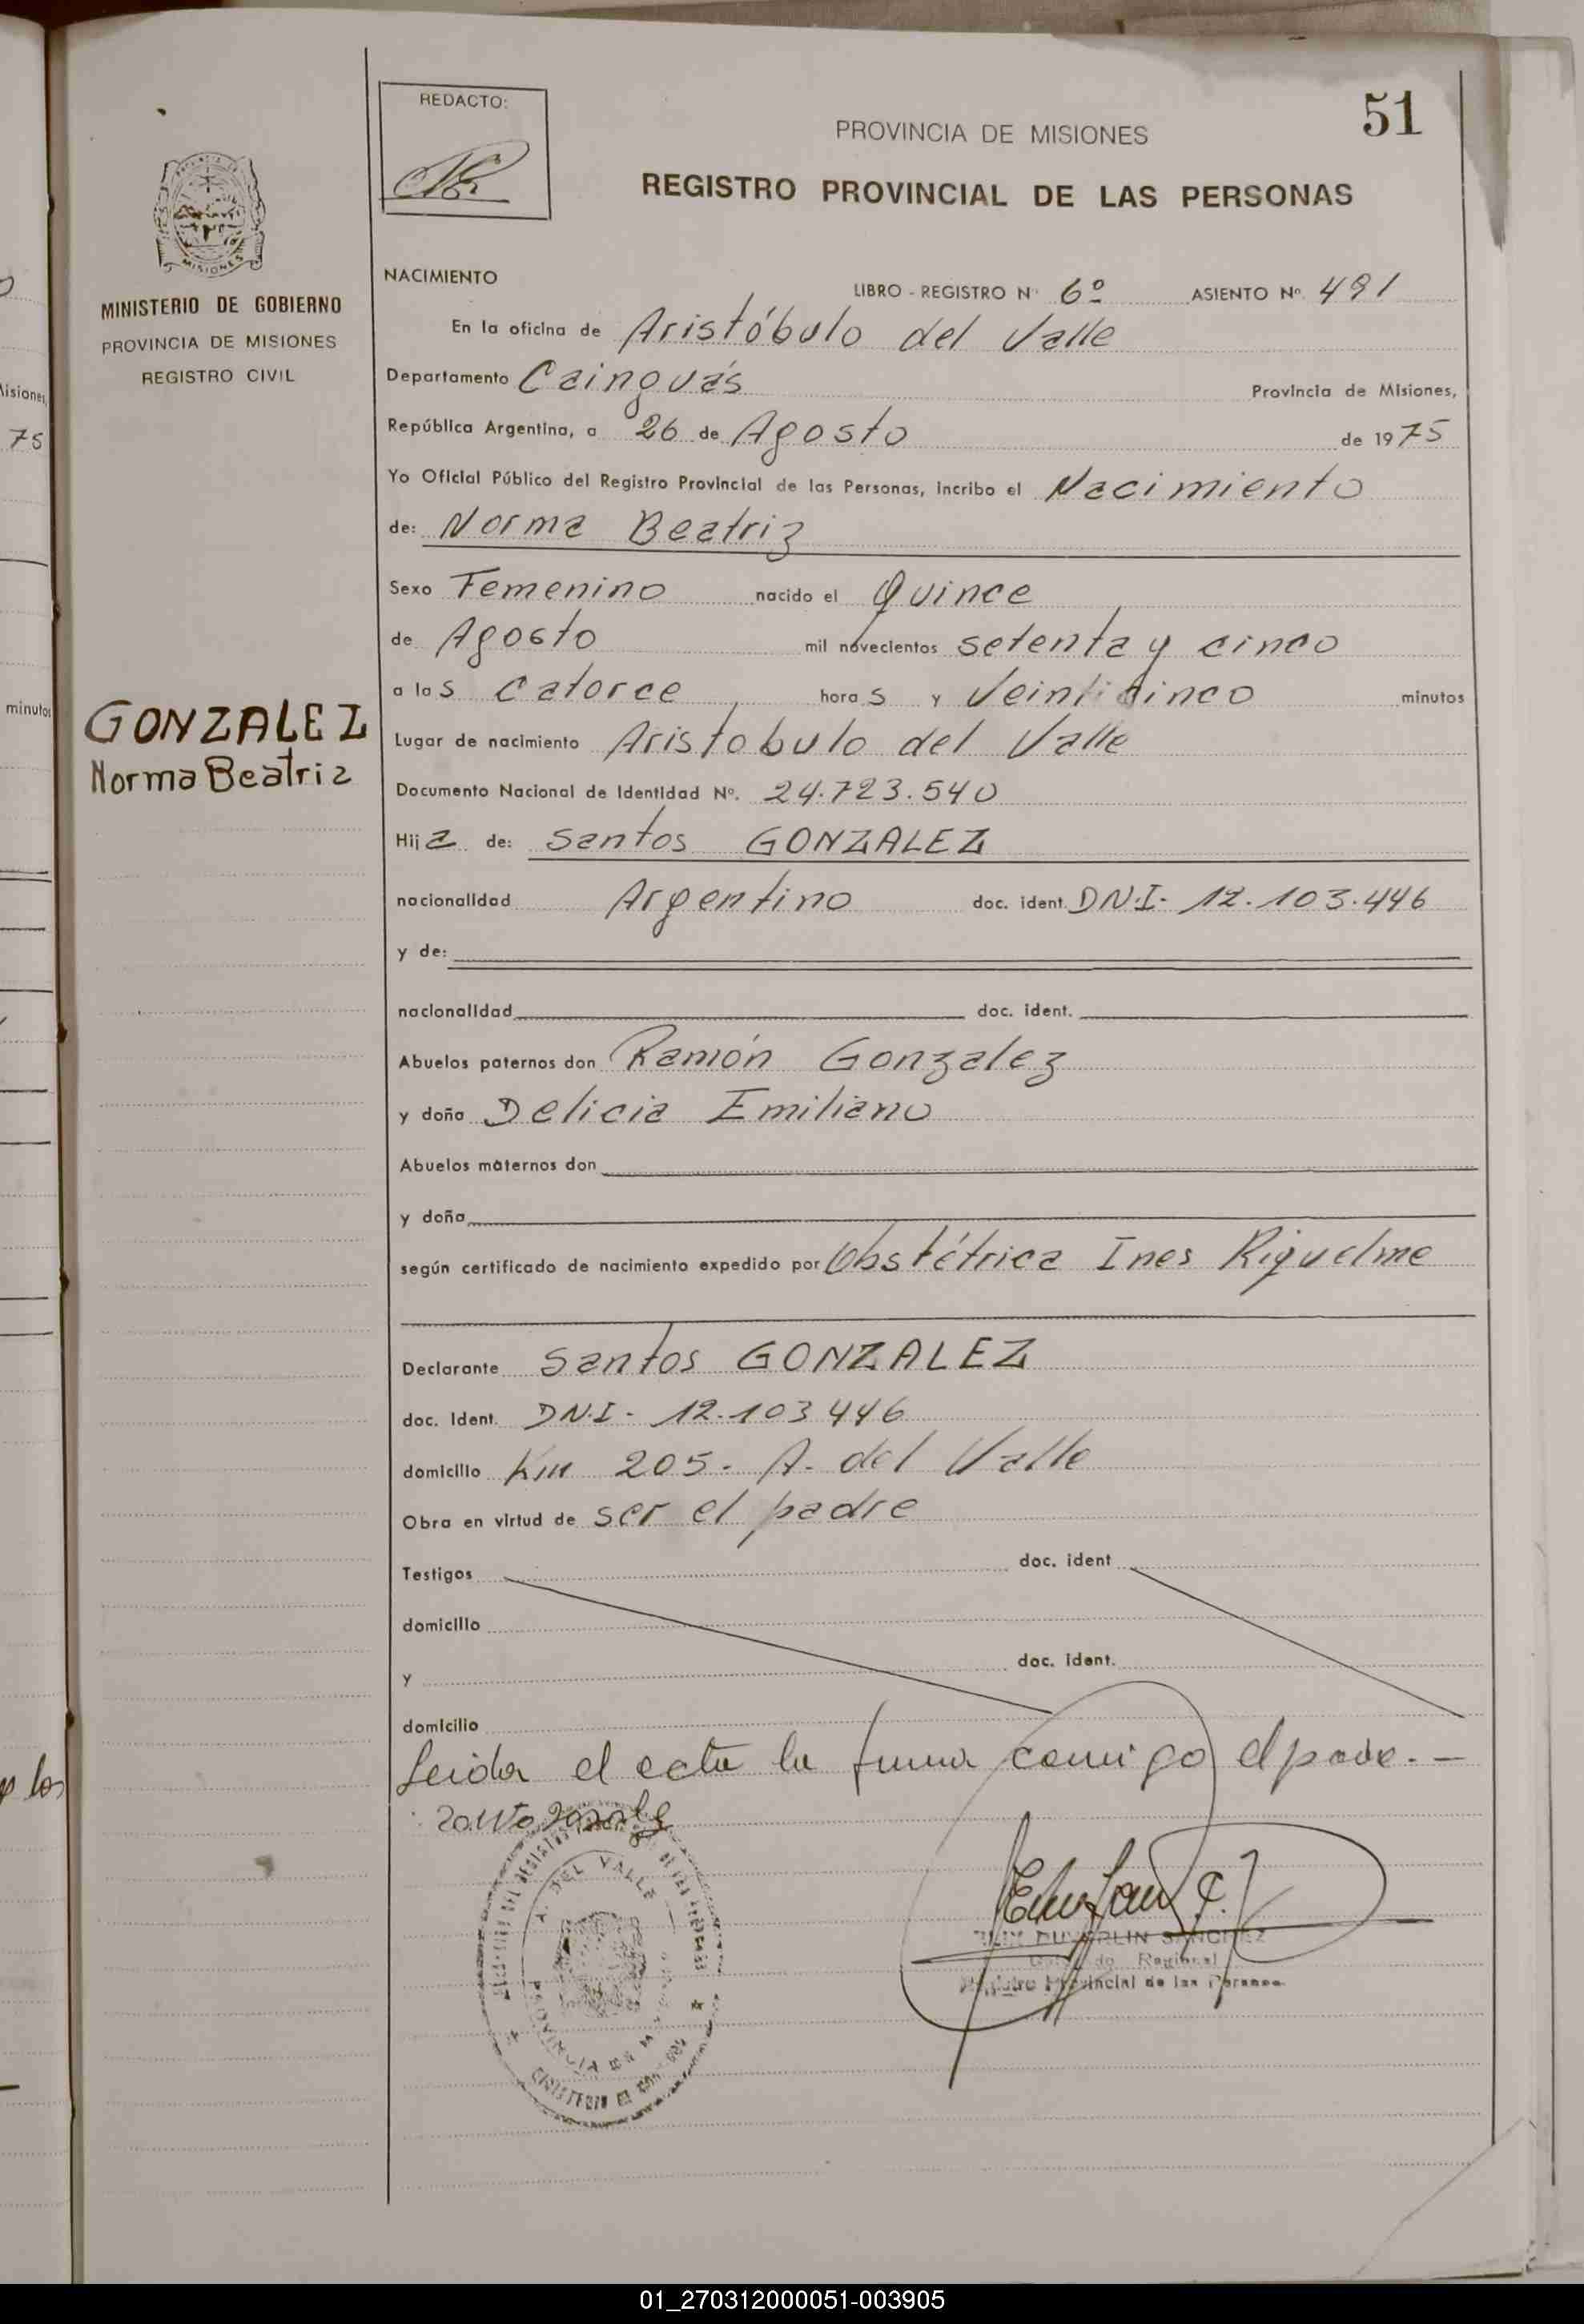 51
REDACTO:
PROVINCIA DE MISIONES
REGISTRO PROVINCIAL DE LAS PERSONAS
MISIONES
MINISTERIO DE GOBIERNO
PROVINCIA DE MISIONES
REGISTRO CIVIL
NACIMIENTO
LIBRO - REGISTRO Nº 6º ASIENTO Nº. 491
En la oficina de Aristóbulo del Valle
Departamento Cainguás Provincia de Misiones,
República Argentina, a 26 de Agosto de 1975
Yo Oficial Público del Registro Provincial de las Personas, incribo el Nacimiento
de: Norma Beatriz
Sexo Femenino nacido el Quince
de Agosto mil novecientos setenta y cinco
a las Catorce horas y Veinticinco minutos
GONZALEZ
Norma Beatriz
Lugar de nacimiento Aristobulo del Valle
Documento Nacional de Identidad Nº. 24.723.540
Hija de: Santos GONZALEZ
nacionalidad Argentino doc. ident. DN.I- 12.103.446
y de:
nacionalidad doc. ident.
Abuelos paternos don Ramón Gonzalez
y doña Delicia Emiliano
Abuelos maternos don
y doña
según certificado de nacimiento expedido por Obstétrica Ines Riquelme
Declarante Santos GONZALEZ
doc. Ident. DN.I- 12.103 446
domicilio Km 205- A. del Valle
Obra en virtud de ser el padre
Testigos doc. ident
domicilio
y doc. ident.
domicilio
Leida el acta la firma conmigo el padre.-
A. DEL VALLE
PROVINCIA DE
SANCHEZ
Regional
Registro Provincial de las Personas
isiones,
75
minutos
los
01_270312000051-003905